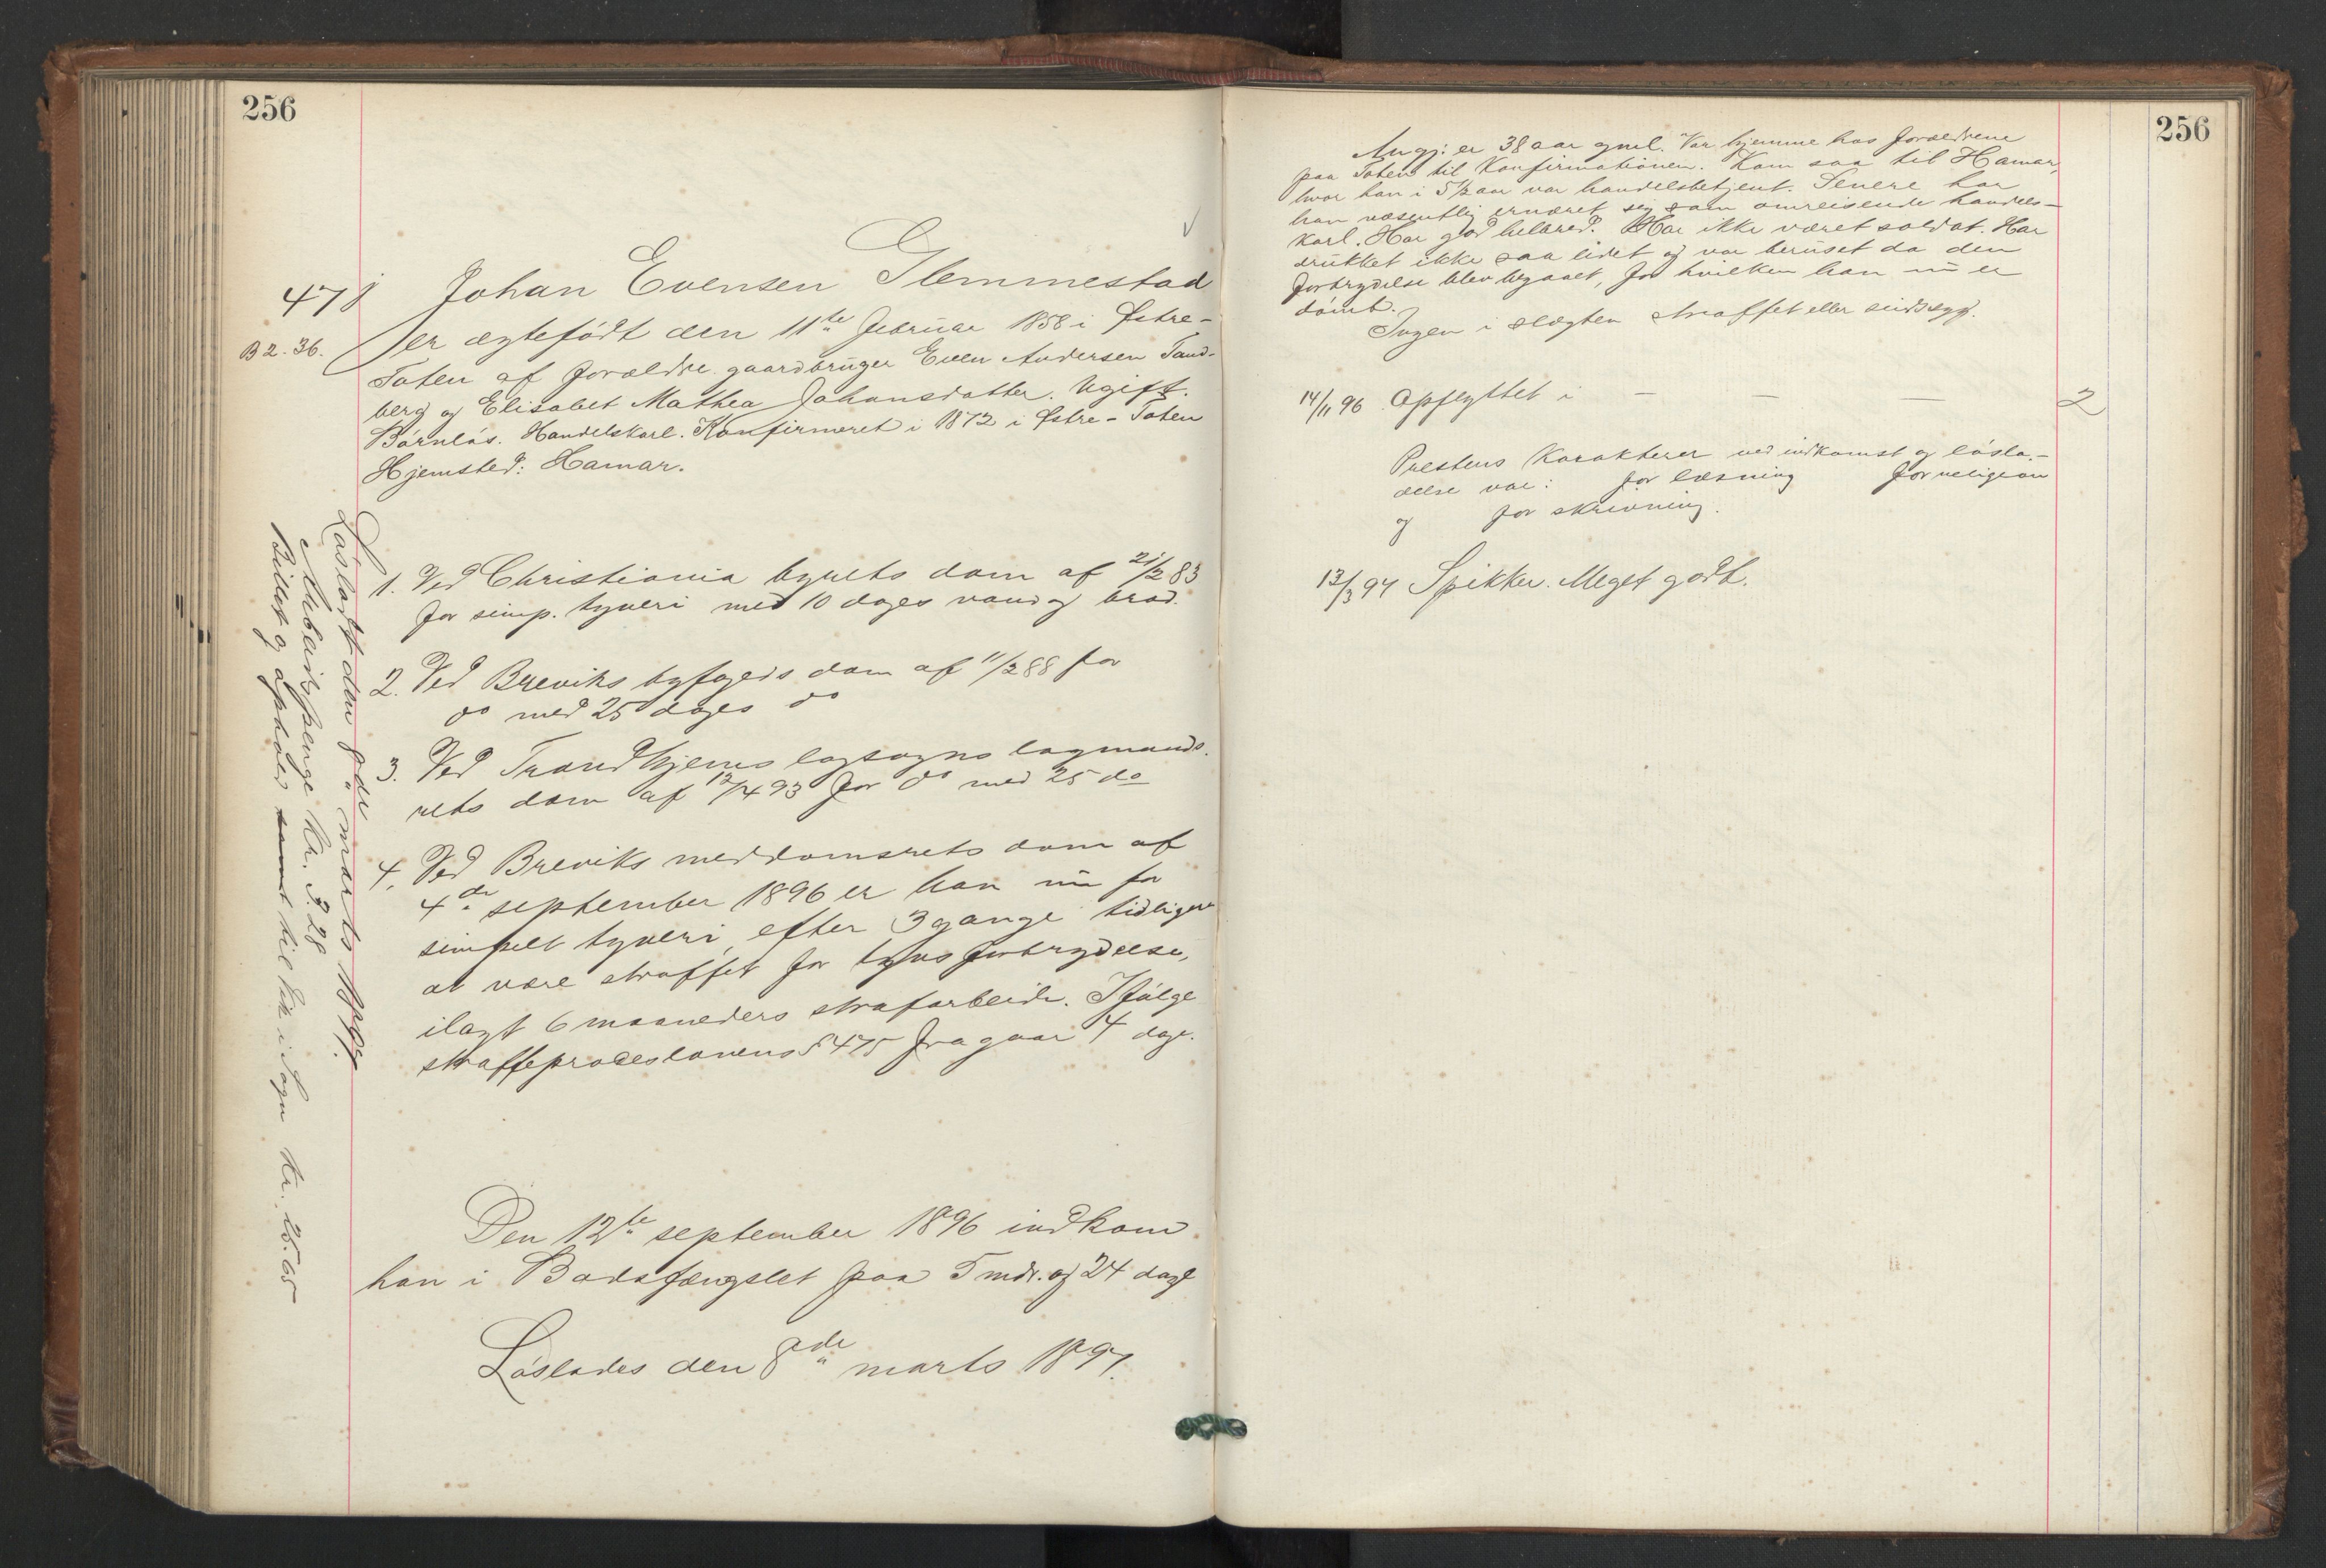 256
478 Johan Evensen Glemmestad
B 2. 36. er ægtefödt den 11te februar 1858 i Östre-
Toten af forældre gaardbruger Even Andersen Tand-
berg og Elisabet Mathea Johansdatter. Ugift.
Barnlös. Handelskarl. Konfirmeret i 1872 i Östre-Toten
Hjemsted: Hamar.
1. Ved Christiania byrets dom af 21/2 83
for simp. tyveri med 10 dages vand og bröd.
2. Ved Breviks byfogeds dom af 11/2 88 for
do med 25 dages do
3. Ved Trondhjems lagsogns lagmands-
rets dom af 12/4 93 for do med 25 do
4. Ved Breviks meddomsrets dom af
4de september 1896 er han nu for
simpelt tyveri, efter 3 gange tidligere
at være straffet for tyvsforbrydelse,
ilagt 6 maaneders strafarbeide. Ifölge
straffeproceslovens § 475 fragaar 4 dage.
Den 12te september 1896 indkom
han i Bodsfængslet paa 5 mdr. og 24 dage
Löslades den 8de marts 1897.
Lösladt den 8de marts 1897.
Arbeidspenge Kr. 3.28
Billet og ophold samt til Vik i Sogn Kr. 25.65
256
Angj: er 38 aar gml. Var hjemme hos forældrene
paa Toten til Konfirmationen. Kom saa til Hamar,
hvor han i 5 1/2 aar var handelsbetjent. Senere har
han væsentlig ernæret sig som omreisende handels-
karl. Har god helbred. Har ikke været soldat. Har
drukket ikke saa lidet og var beruset da den
forbrydelse blev begaaet, for hvilken han nu er
dömt.
Ingen i slægten straffet eller sindssyg.
14/11 96 Opflyttet i — — — 2
Prestens Karakterer ved indkomst og lösla-
delse var: for læsning for religion
og for skrivning.
13/3 97 Spikker. Meget godt.